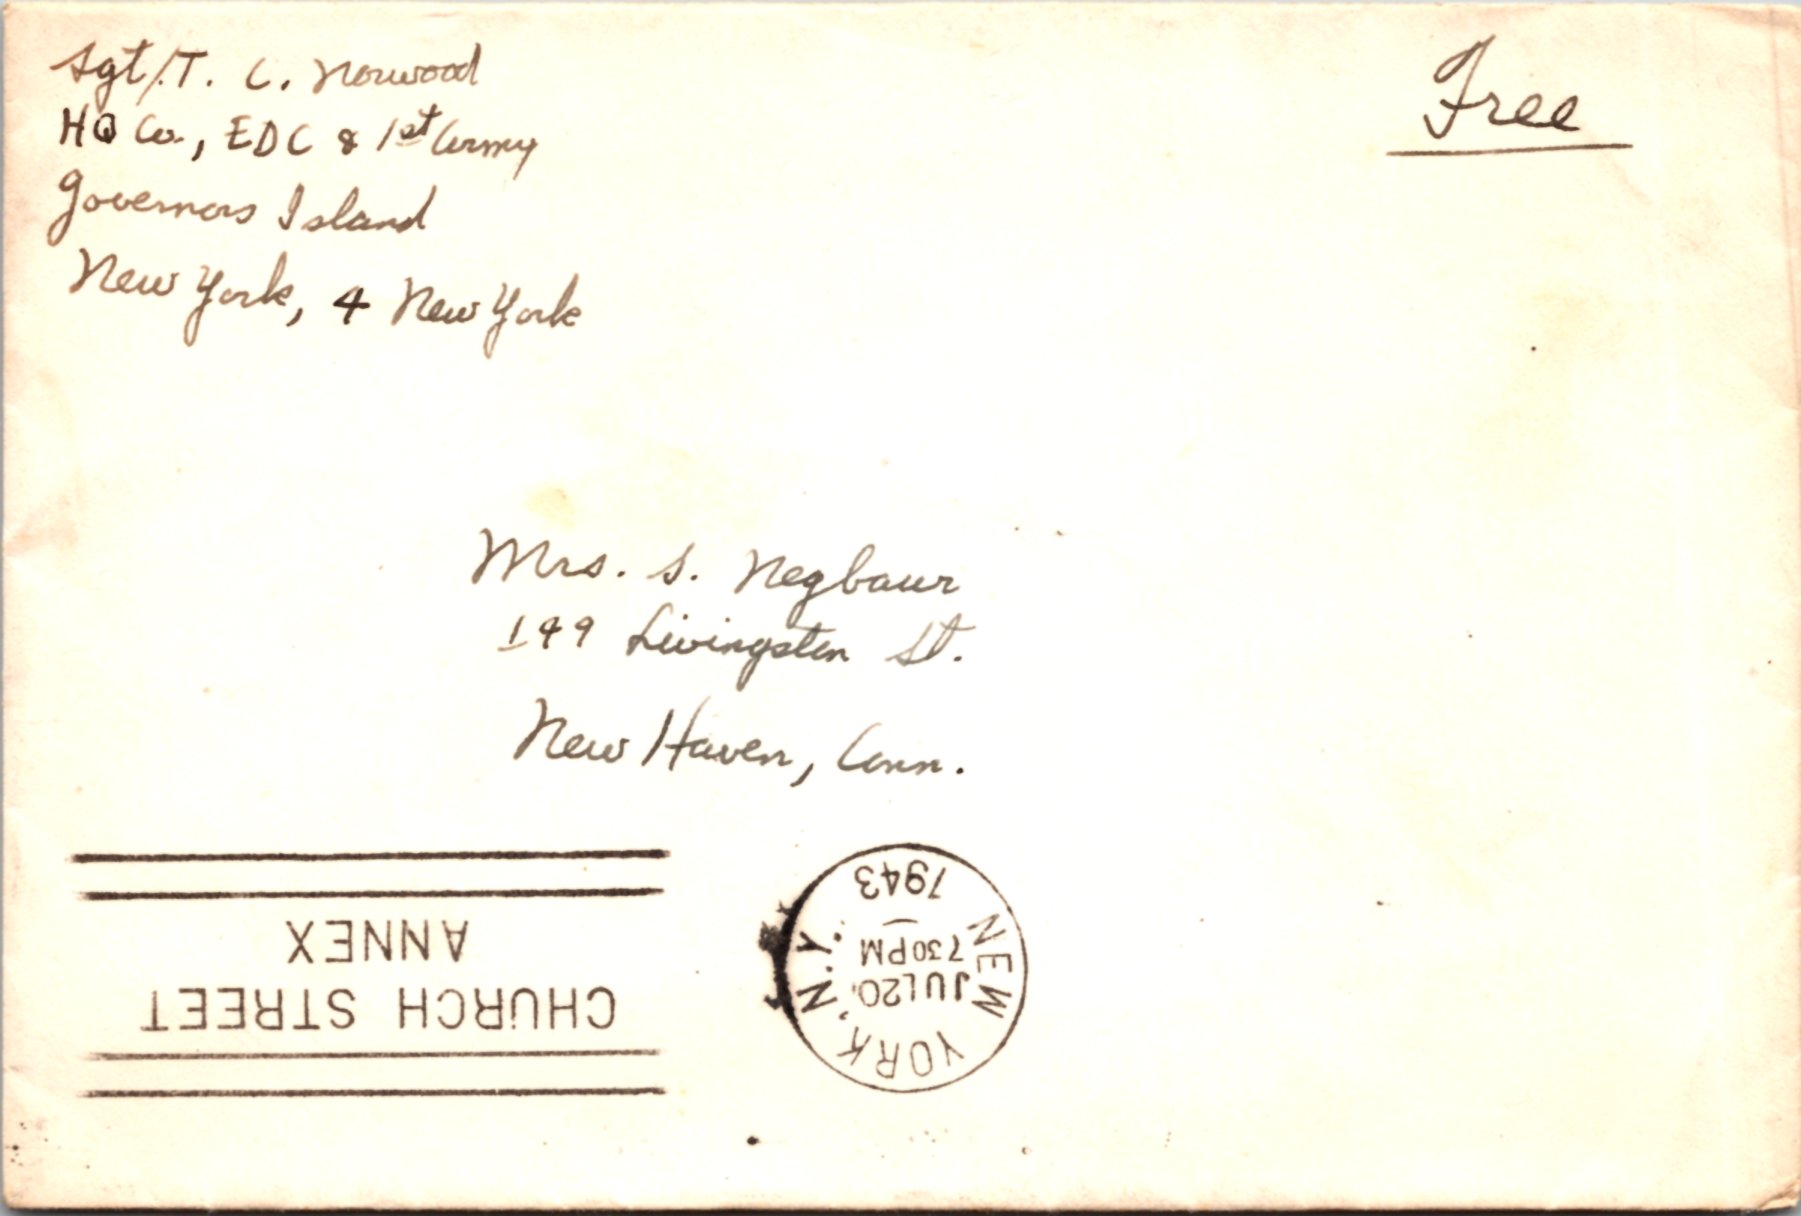 Sgt/. T. C. Norwood
HQ Co., EDC & 1st Army
Governors Island
New York, 4 New York
Free
Mrs. S. Negbaur
149 Livingston St.
New Haven, Conn.
NEW YORK, N.Y.
JUL 20
7 30 PM
1943
CHURCH STREET
ANNEX